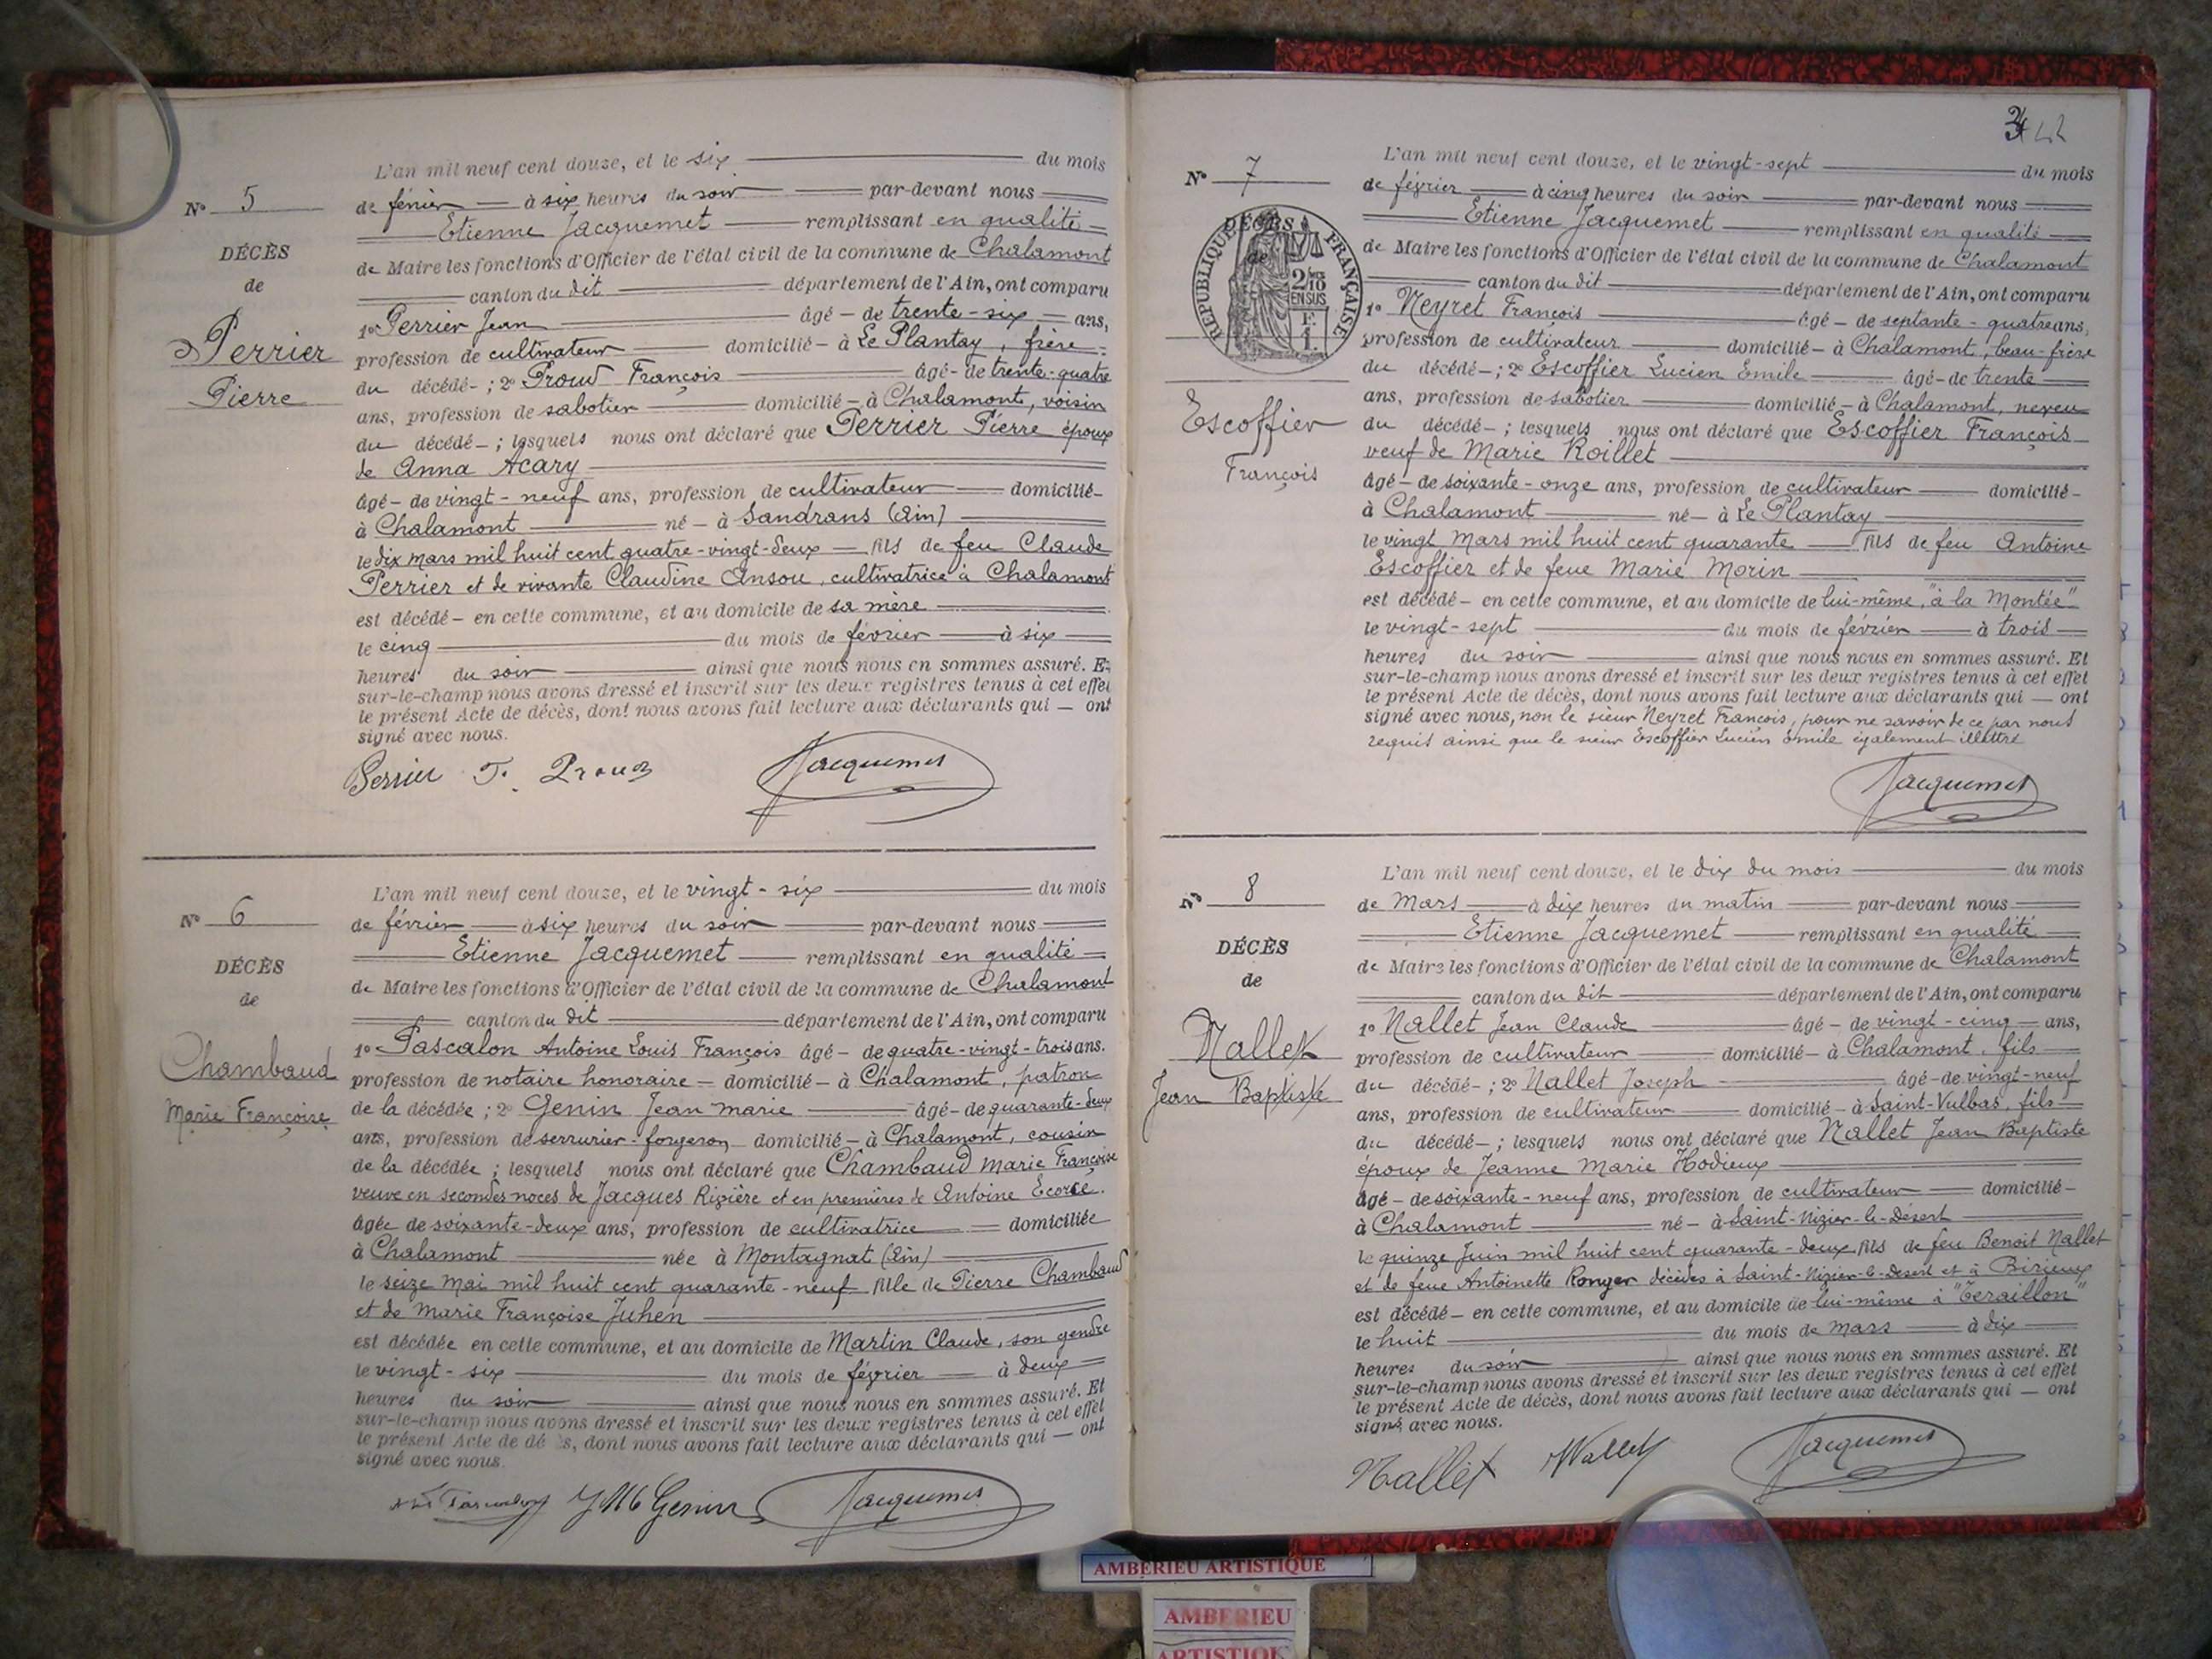 L'an mil neuf cent douze, et le six du mois
N° 5
de février à six heures du soir par-devant nous
Etienne Jacquemet remplissant en qualité
DÉCÈS
de Maire les fonctions d'Officier de l'état civil de la commune de Chalamont
de
canton du dit département de l'Ain, ont comparu
1° Perrier Jean âgé - de trente-six ans,
Perrier
profession de cultivateur domicilié - à Le Plantay, frère
du décédé - ; 2° Proud François âgé - de trente-quatre
Pierre
ans, profession de sabotier domicilié - à Chalamont, voisin
du décédé - ; lesquels nous ont déclaré que Perrier Pierre époux
de Anna Acary
âgé - de vingt-neuf ans, profession de cultivateur domicilié -
à Chalamont né - à Sandrans (Ain)
le dix mars mil huit cent quatre-vingt-deux fils de feu Claude
Perrier et de vivante Claudine Ansou, cultivatrice à Chalamont
est décédé - en cette commune, et au domicile de sa mère
le cinq du mois de février à six
heures du soir ainsi que nous nous en sommes assuré. Et
sur-le-champ nous avons dressé et inscrit sur les deux registres tenus à cet effet
le présent Acte de décès, dont nous avons fait lecture aux déclarants qui — ont
signé avec nous.
Perrier F. Proud Jacquemet
L'an mil neuf cent douze, et le vingt-six du mois
N° 6
de février à six heures du soir par-devant nous
Etienne Jacquemet remplissant en qualité
DÉCÈS
de Maire les fonctions d'Officier de l'état civil de la commune de Chalamont
de
canton du dit département de l'Ain, ont comparu
1° Pascalon Antoine Louis François âgé - de quatre-vingt-trois ans.
Chambaud
profession de notaire honoraire domicilié - à Chalamont, patron
Marie Françoise
de la décédée ; 2° Genin Jean Marie âgé - de quarante-deux
ans, profession de serrurier-forgeron domicilié - à Chalamont, cousin
de la décédée ; lesquels nous ont déclaré que Chambaud Marie Françoise
veuve en secondes noces de Jacques Rivière et en premières de Antoine Ecorce.
âgée de soixante-deux ans, profession de cultivatrice domiciliée
à Chalamont née à Montagnat (Ain)
le seize Mai mil huit cent quarante-neuf fille de Pierre Chambaud
et de Marie Françoise Juhen
est décédée en cette commune, et au domicile de Martin Claude, son gendre
le vingt-six du mois de février à deux
heures du soir ainsi que nous nous en sommes assuré. Et
sur-le-champ nous avons dressé et inscrit sur les deux registres tenus à cet effet
le présent Acte de décès, dont nous avons fait lecture aux déclarants qui — ont
signé avec nous.
JM Genin Jacquemet
L'an mil neuf cent douze, et le vingt-sept du mois
N° 7
de février à cinq heures du soir par-devant nous
Etienne Jacquemet remplissant en qualité
DÉCÈS
RÉPUBLIQUE FRANÇAISE
2/10 EN SUS
de Maire les fonctions d'Officier de l'état civil de la commune de Chalamont
de
canton du dit département de l'Ain, ont comparu
1° Neyret François âgé - de septante-quatre ans,
profession de cultivateur domicilié - à Chalamont, beau-frère
du décédé - ; 2° Escoffier Lucien Emile âgé - de trente
ans, profession de sabotier domicilié - à Chalamont, neveu
Escoffier
du décédé - ; lesquels nous ont déclaré que Escoffier François
veuf de Marie Roillet
François
âgé - de soixante-onze ans, profession de cultivateur domicilié -
à Chalamont né - à Le Plantay
le vingt Mars mil huit cent quarante fils de feu Antoine
Escoffier et de feue Marie Morin
est décédé - en cette commune, et au domicile de lui-même, "à la Montée"
le vingt-sept du mois de février à trois
heures du soir ainsi que nous nous en sommes assuré. Et
sur-le-champ nous avons dressé et inscrit sur les deux registres tenus à cet effet
le présent Acte de décès, dont nous avons fait lecture aux déclarants qui — ont
signé avec nous, non le sieur Neyret François, pour ne savoir de ce par nous
requis ainsi que le sieur Escoffier Lucien Emile également illettré
Jacquemet
L'an mil neuf cent douze, et le dix du mois du mois
N° 8
de Mars à dix heures du matin par-devant nous
Etienne Jacquemet remplissant en qualité
DÉCÈS
de Maire les fonctions d'Officier de l'état civil de la commune de Chalamont
de
canton du dit département de l'Ain, ont comparu
1° Nallet Jean Claude âgé - de vingt-cinq ans,
Nallet
profession de cultivateur domicilié - à Chalamont, fils
du décédé - ; 2° Nallet Joseph âgé - de vingt-neuf
Jean Baptiste
ans, profession de cultivateur domicilié - à Saint-Vulbas, fils
du décédé - ; lesquels nous ont déclaré que Nallet Jean Baptiste
époux de Jeanne Marie Hodieux
âgé - de soixante-neuf ans, profession de cultivateur domicilié -
à Chalamont né - à Saint-Nizier-le-Désert
le quinze Juin mil huit cent quarante-deux fils de feu Benoit Nallet
et de feue Antoinette Ronger décédés à Saint-Nizier-le-Désert et à Birieux
est décédé - en cette commune, et au domicile de lui-même à "Teraillon"
le huit du mois de Mars à dix
heures du soir ainsi que nous nous en sommes assuré. Et
sur-le-champ nous avons dressé et inscrit sur les deux registres tenus à cet effet
le présent Acte de décès, dont nous avons fait lecture aux déclarants qui — ont
signé avec nous.
Nallet Nallet Jacquemet
AMBERIEU ARTISTIQUE
AMBERIEU
ARTISTIQUE